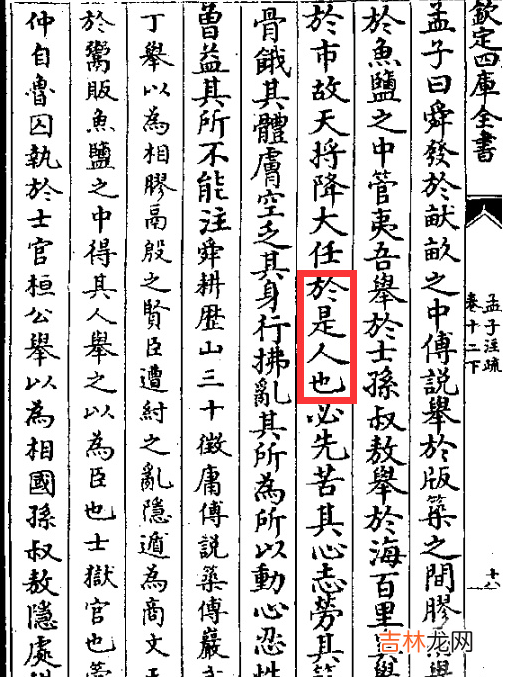 欽定四庫全書
孟子注疏
卷十二下
十八
孟子曰舜發於畎畝之中傅說舉於版築之間膠鬲舉
於魚鹽之中管夷吾舉於士孫叔敖舉於海百里奚舉
於市故天將降大任於是人也必先苦其心志勞其筋
骨餓其體膚空乏其身行拂亂其所為所以動心忍性
曾益其所不能注舜耕歷山三十徵庸傅說築傅巖武
丁舉以為相膠鬲殷之賢臣遭紂之亂隱遁為商文王
於鬻販魚鹽之中得其人舉之以為臣也士獄官也管
仲自魯囚執於士官桓公舉以為相國孫叔敖隱處
吉林龙网